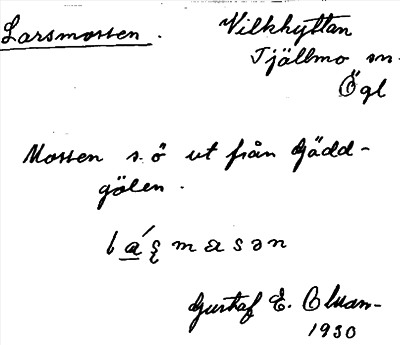 Larsmossen.
Vilkhyttan
Tjällmo sn.
Ögl
Mossen s.ö ut från Gädd-
gölen.
Gustaf E.
1930